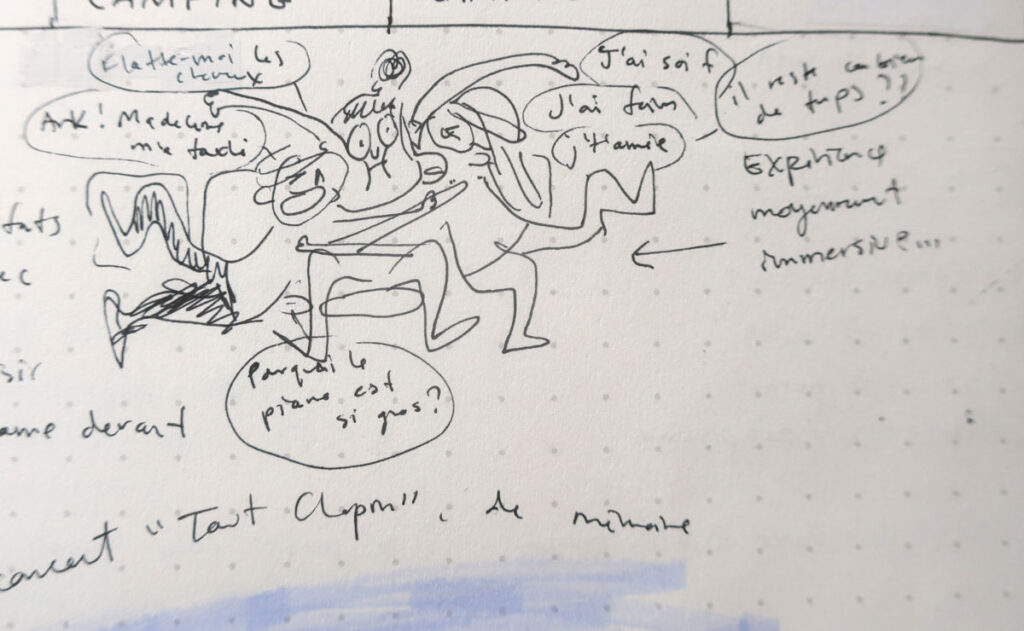 CAMPING
Flatte-moi les
cheveux
J'ai soif
il reste combien
de temps ??
Ark! Madeleine
me touche
J'ai faim
j't'aime
Expérience
moyennement
immersive...
Pourquoi le
piano est
si gros?
devant
concert "Tout Chopin", de mémoire